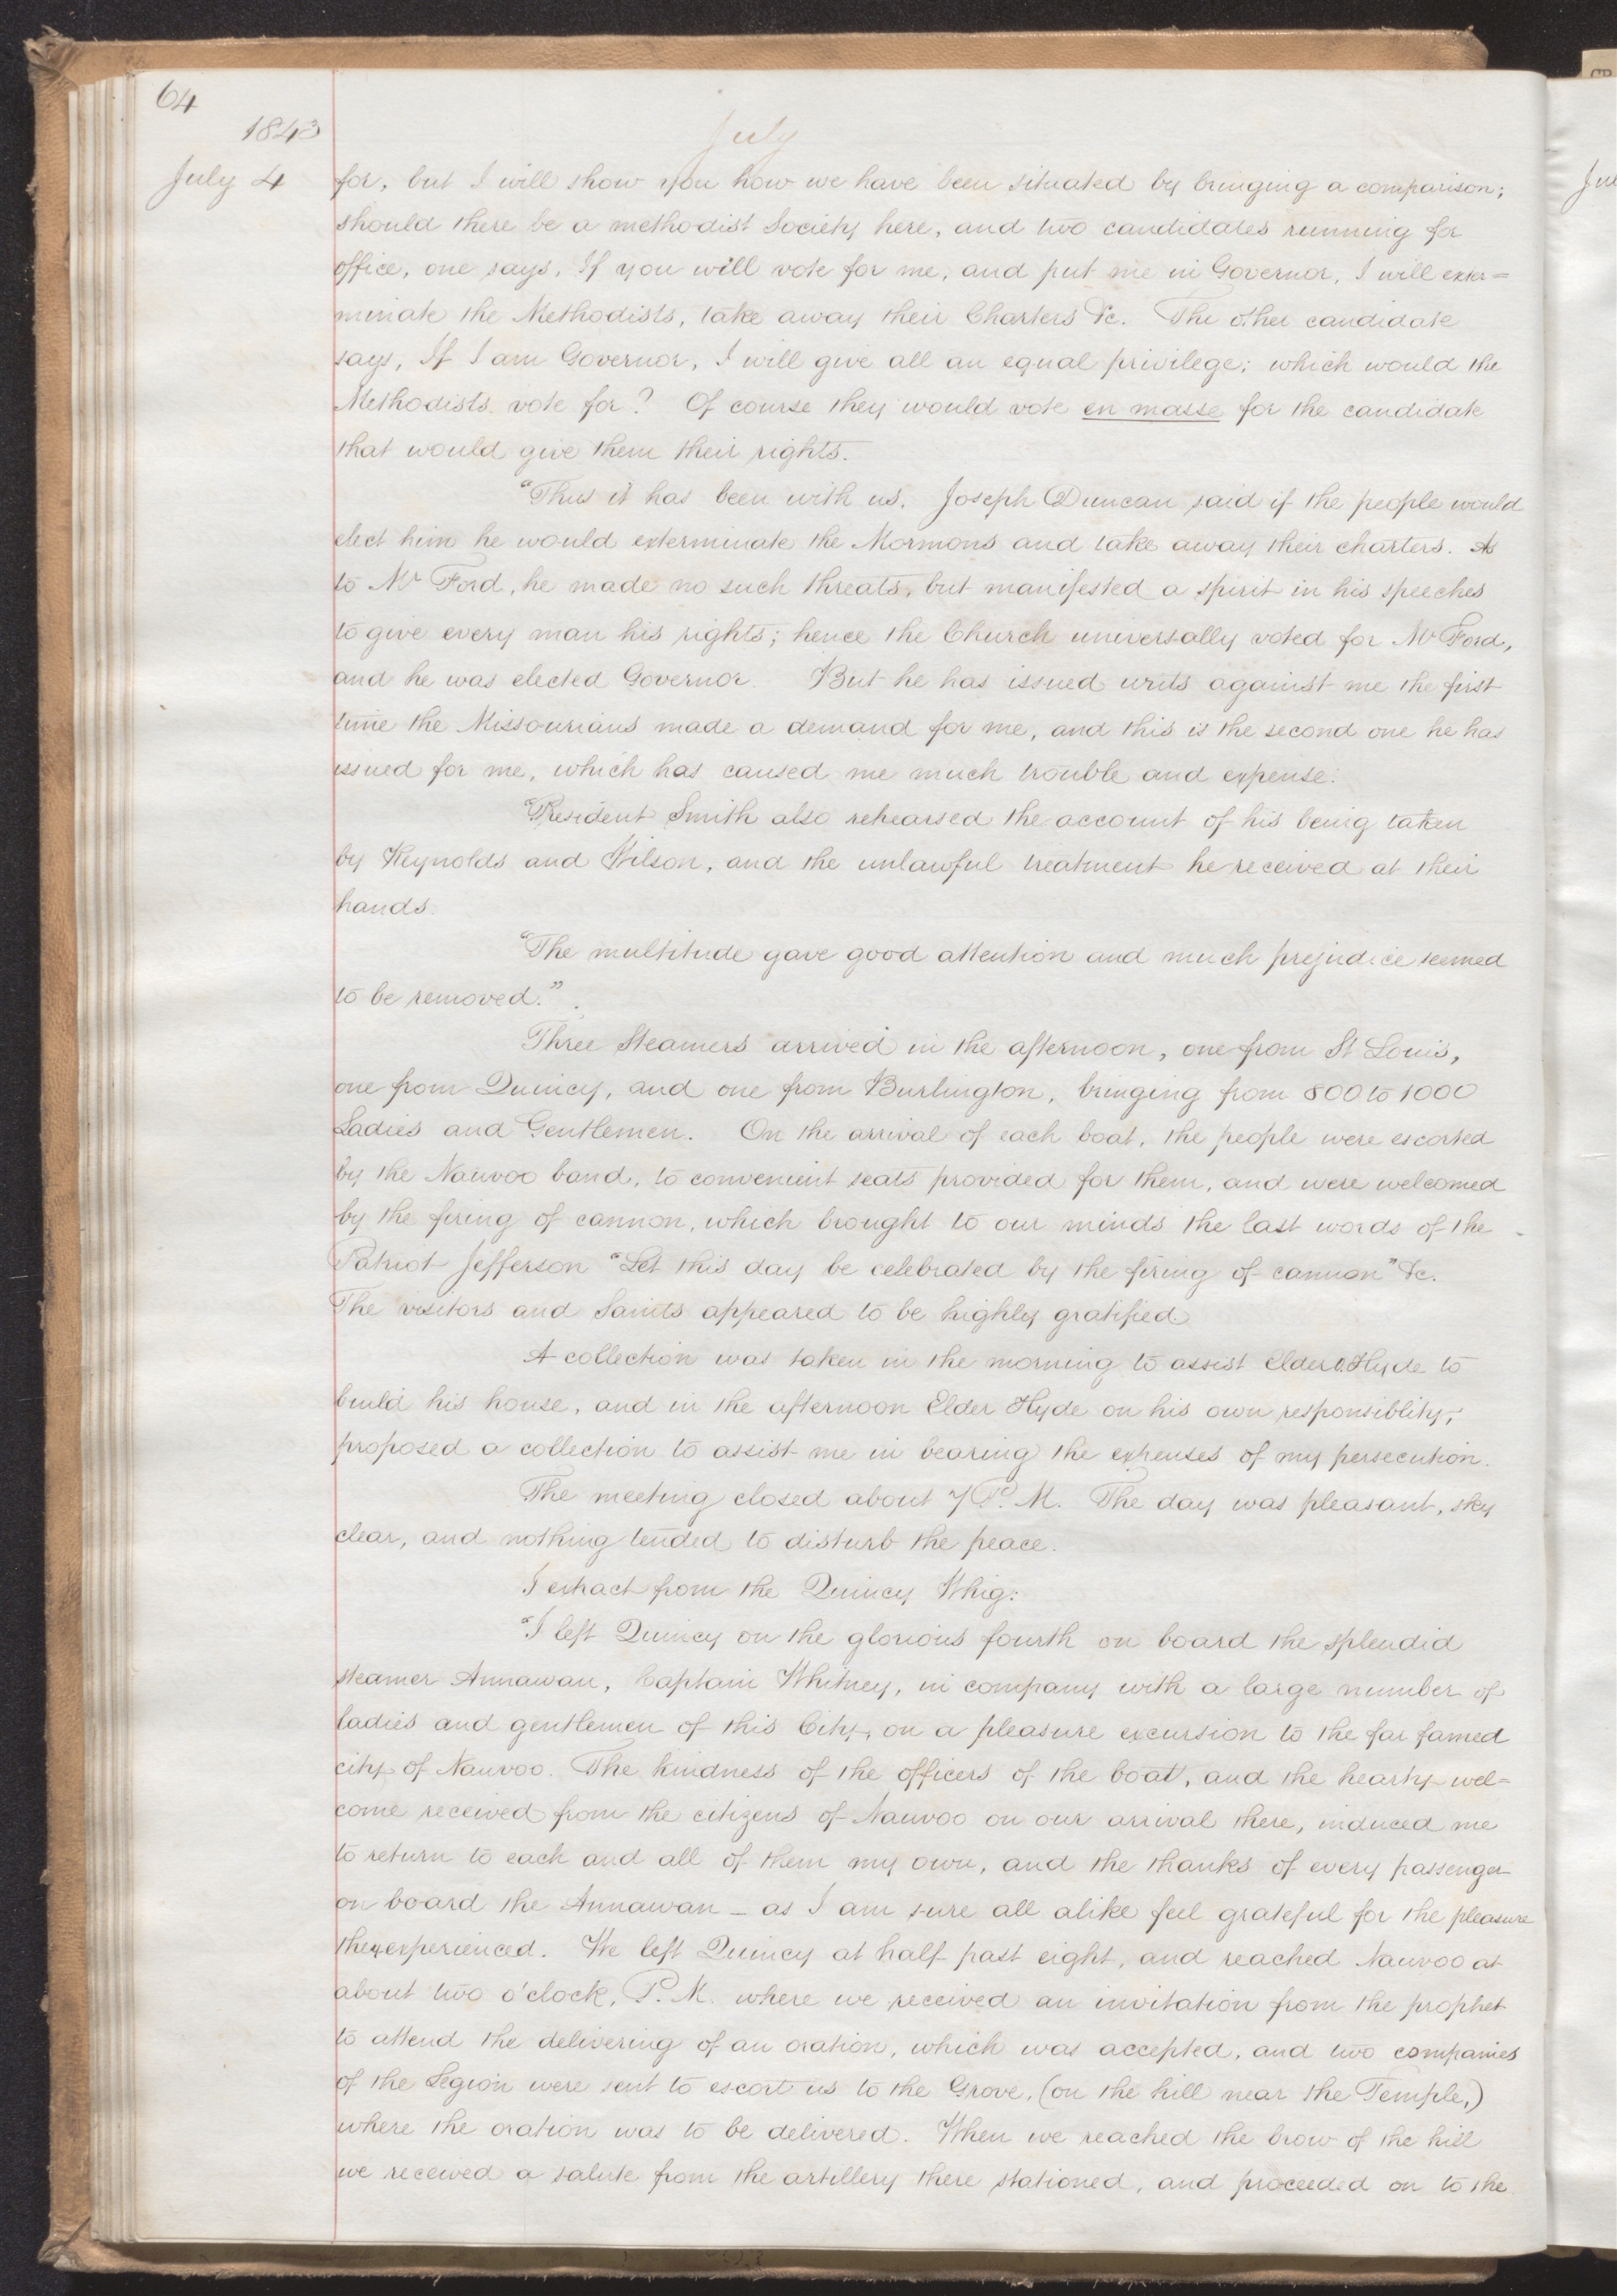 64
1843
July
July 4
for, but I will show you how we have been situated by bringing a comparison;
should there be a methodist Society here, and two candidates running for
office, one says, If you will vote for me, and put me in Governor, I will exter=
minate the Methodists, take away their Charters &c. The other candidate
says, If I am Governor, I will give all an equal privilege; which would the
Methodists vote for? Of course they would vote en masse for the candidate
that would give them their rights.
"Thus it has been with us. Joseph Duncan said if the people would
elect him he would exterminate the Mormons and take away their charters. As
to Mr Ford, he made no such threats, but manifested a spirit in his speeches
to give every man his rights; hence the Church universally voted for Mr Ford,
and he was elected Governor. But he has issued writs against me the first
time the Missourians made a demand for me, and this is the second one he has
issued for me, which has caused me much trouble and expense.
"President Smith also rehearsed the account of his being taken
by Reynolds and Wilson, and the unlawful treatment he received at their
hands.
"The multitude gave good attention and much prejudice seemed
to be removed."
Three Steamers arrived in the afternoon, one from St Louis,
one from Quincy, and one from Burlington, bringing from 800 to 1000
Ladies and Gentlemen. On the arrival of each boat, the people were escorted
by the Nauvoo band, to convenient seats provided for them, and were welcomed
by the firing of cannon, which brought to our minds the last words of the
Patriot Jefferson "Let this day be celebrated by the firing of cannon" &c.
The visitors and Saints appeared to be highly gratified
A collection was taken in the morning to assist Elder O. Hyde to
build his house, and in the afternoon Elder Hyde on his own responsiblity,
proposed a collection to assist me in bearing the expenses of my persecution.
The meeting closed about 7 P. M. The day was pleasant, sky
clear, and nothing tended to disturb the peace.
I extract from the Quincy Whig:
"I left Quincy on the glorious fourth on board the splendid
steamer Annawan, Captain Whitney, in company with a large number of
ladies and gentlemen of this City, on a pleasure excursion to the far famed
city of Nauvoo. The kindness of the officers of the boat, and the hearty wel=
come received from the citizens of Nauvoo on our arrival there, induced me
to return to each and all of them my own, and the thanks of every passenger
on board the Annawan — as I am sure all alike feel grateful for the pleasure
they experienced. We left Quincy at half past eight, and reached Nauvoo at
about two o'clock, P. M. where we received an invitation from the prophet
to attend the delivering of an oration, which was accepted, and two companies
of the Legion were sent to escort us to the Grove, (on the hill near the Temple,)
where the oration was to be delivered. When we reached the brow of the hill
we received a salute from the artillery there stationed, and proceeded on to the